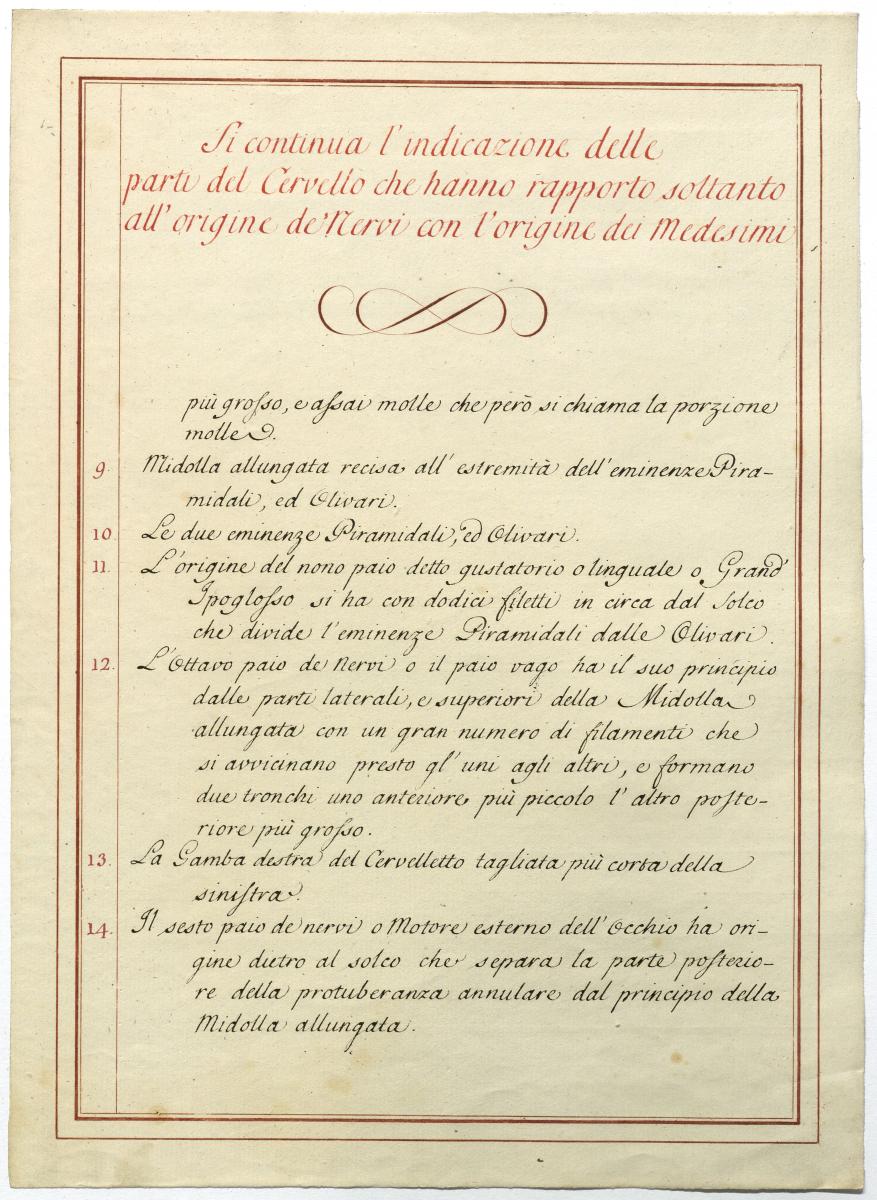 Si continua l'indicazione delle
parti del Cervello che hanno rapporto soltanto
all'origine de' Nervi con l'origine dei Medesimi
più grosso, e assai molle che però si chiama la porzione
molle.
9. Midolla allungata recisa all'estremità dell'eminenze Pira-
midali, ed Olivari.
10. Le due eminenze Piramidali, ed Olivari.
11. L'origine del nono paio detto gustatorio o linguale o Grand'
Ipoglosso si ha con dodici filetti in circa dal solco
che divide l'eminenze Piramidali dalle Olivari.
12. L'Ottavo paio de Nervi o il paio vago ha il suo principio
dalle parti laterali, e superiori della Midolla
allungata con un gran numero di filamenti che
si avvicinano presto gl'uni agli altri, e formano
due tronchi uno anteriore più piccolo l'altro poste-
riore più grosso.
13. La Gamba destra del Cervelletto tagliata più corta della
sinistra.
14. Il sesto paio de nervi o Motore esterno dell'Occhio ha ori-
gine dietro al solco che separa la parte posterio-
re della protuberanza annulare dal principio della
Midolla allungata.